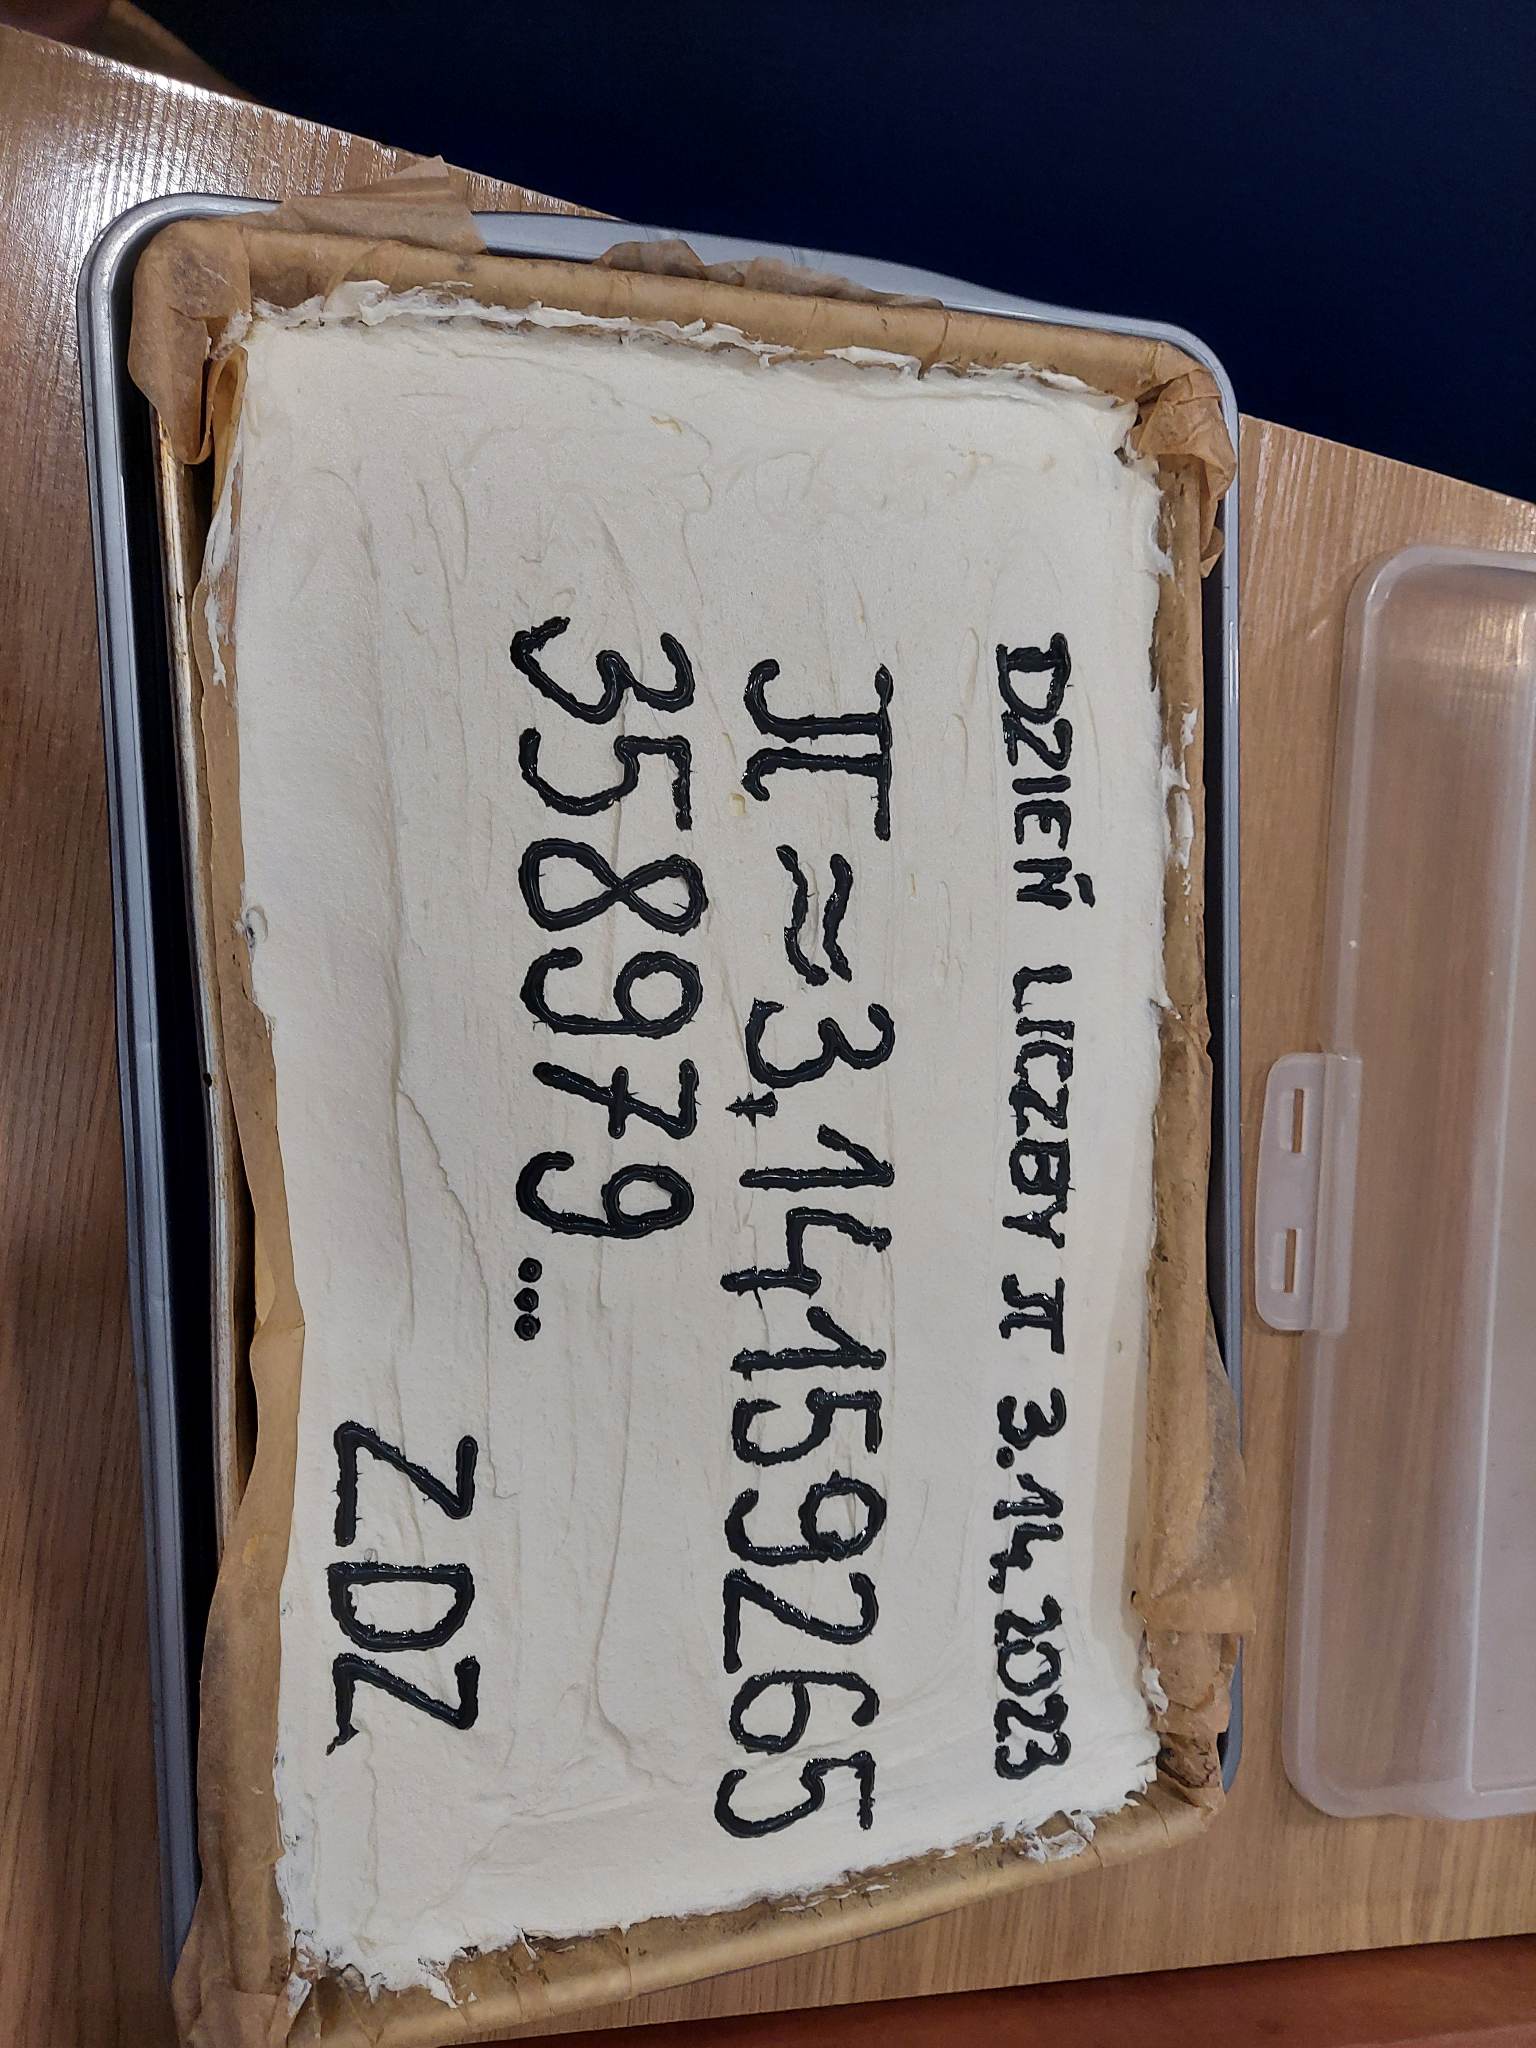 DZIEŃ LICZBY π 3.14.2023
π≈3,14159265
358979...
ZDZ